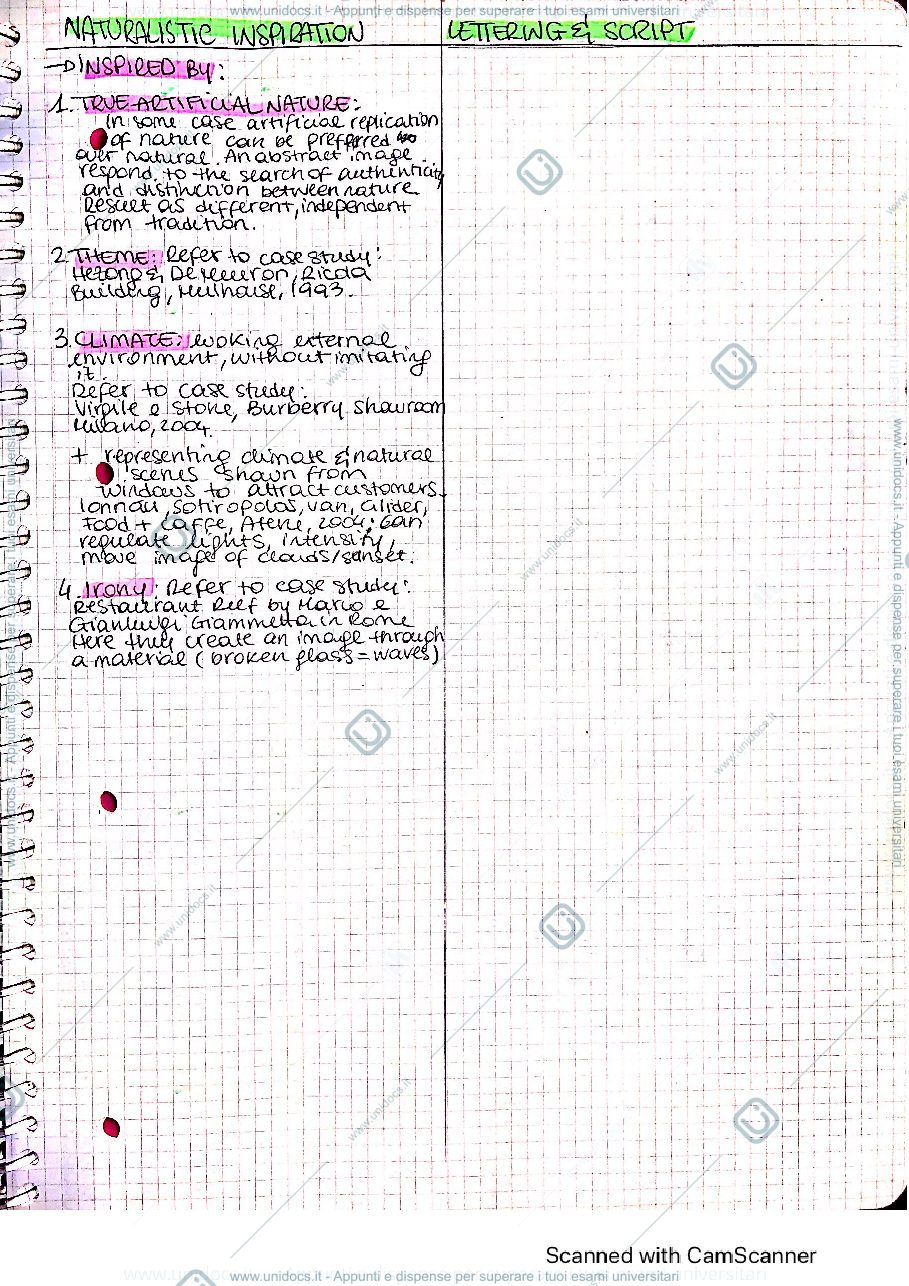 www.unidocs.it - Appunti e dispense per superare i tuoi esami universitari
NATURALISTIC INSPIRATION
LETTERING & SCRIPT
INSPIRED BY:
1. TRUE ARTIFICIAL NATURE:
In some case artificial replication
of nature can be prefferred
over natural. An abstract image
respond to the search of authenticity
and distinction between nature
Result as different, independent
from tradition.
2. THEME: Refer to case study:
Hezong & De Meuron, Ricola
Building, Mulhouse, 1993.
3. CLIMATE: evoking external
environment, without imitating
it.
Refer to case study:
Virgile e Stone, Burberry showroom
Milano, 2004.
+ representing climate & natural
scenes shown from
windows to attract customers.
Ionnau, Sotiropolos, van, Gilder,
Food + Caffe, Atene, 2004: can
regulate lights, intensity,
move image of clouds/sunset.
4. Irony: Refer to case study:
Restaurant Reef by Marco e
Gianluigi Giammetta in Rome
Here they create an image through
a material (broken glass = waves)
www.unidocs.it - Appunti e dispense per superare i tuoi esami universitari
www.unidocs.it - Appunti e dispense per superare i tuoi esami universitari
www.unidocs.it
www.unidocs.it
www.unidocs.it
www.unidocs.it
www.unidocs.it
Scanned with CamScanner
www.unidocs.it - Appunti e dispense per superare i tuoi esami universitari